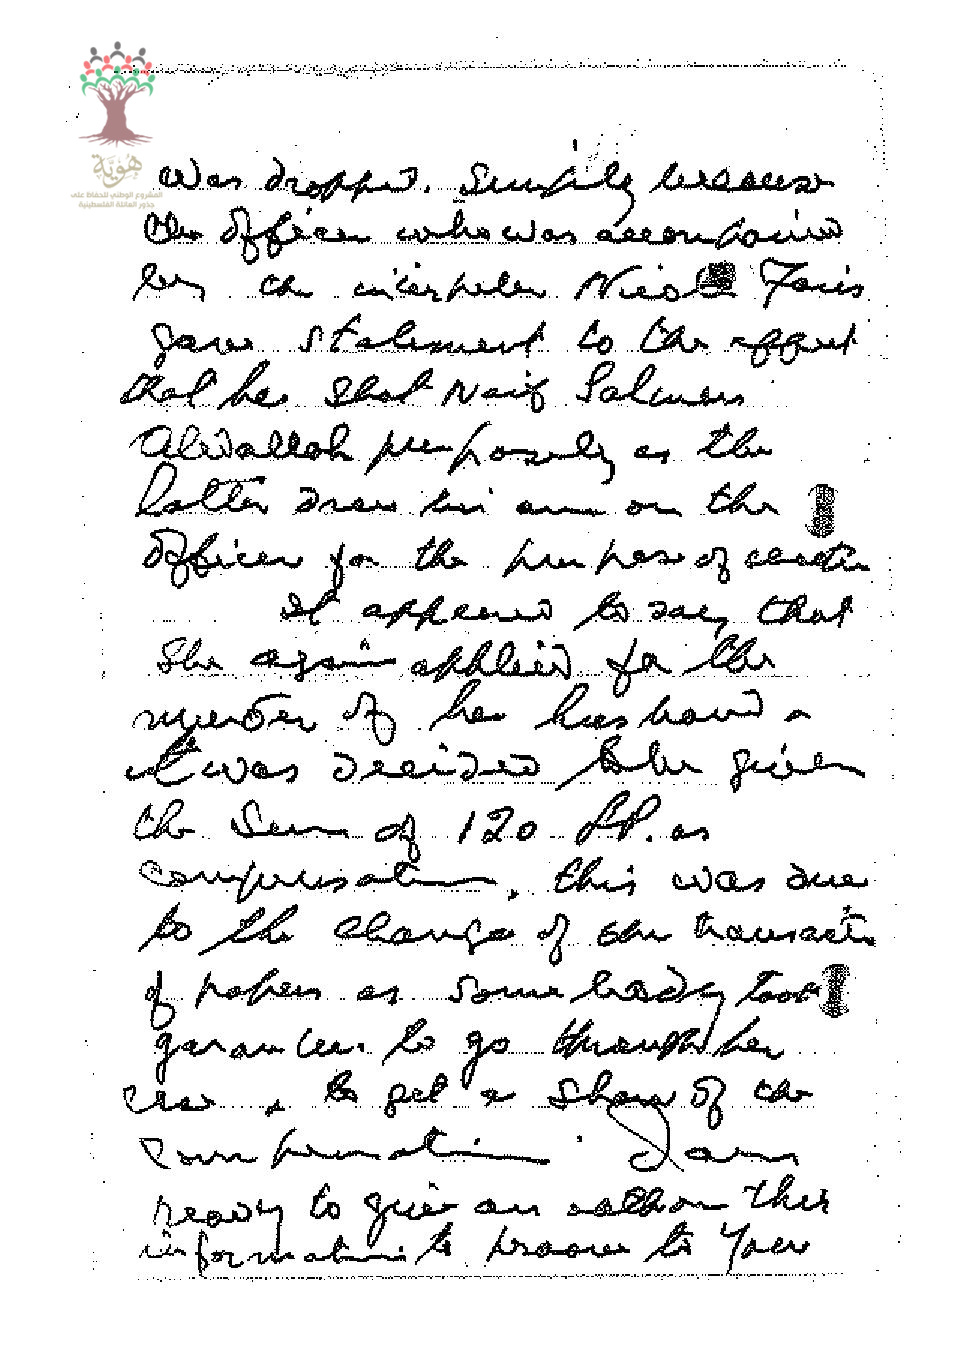 هوية
المشروع الوطني للحفاظ على
جذور العائلة الفلسطينية
was dropped. Simply because
the officer who was accompained
by the interpeter Nicola Faris
gave statement to the effect
that he shot Naif Salman
Abdallah purposely as the
latter draw his arm on the
officer for the purpose of
It appeared to say that
She again applied for the
murder of her husband &
it was decided to be given
the Sum of 120 LP. as
compensation, this was due
to the change of
of papers as some body took
to go through her
case & to get a share of the
compensation. I am
ready to give an oath on this
information to proove to you